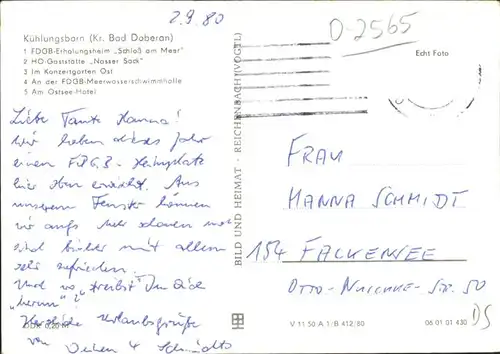 2.9.80
O-2565
Kühlungsborn (Kr. Bad Doberan)
1 FDGB-Erholungsheim „Schloß am Meer"
2 HO-Gaststätte „Nasser Sack"
3 Im Konzertgarten Ost
4 An der FDGB-Meerwasserschwimmhalle
5 Am Ostsee-Hotel
Echt Foto
Liebe Tante Hanna!
Wir haben dieses Jahr
einen FDGB-Heimplatz
hier oben erwischt. Aus
unserem Fenster können
wir aufs Meer schauen und
sind bisher mit allem
sehr zufrieden.
Und wo „treibst" Du Dich
„herum"?
Herzliche Urlaubsgrüße
von Deinen 4 Schmidts
BILD UND HEIMAT · REICHENBACH (VOGTL)
FRAU
HANNA SCHMIDT
154 FALKENSEE
OTTO-NUSCHKE-STR. 50
DS
V 11 50 A 1/B 412/80
06 01 01 430